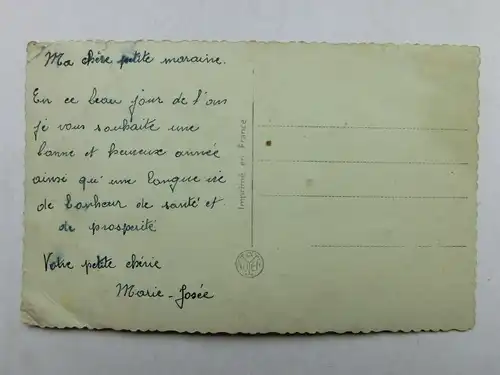 Ma chère petite maraine.
En ce beau jour de l'an
je vous souhaite une
bonne et heureux année
ainsi qu'une longue vie
de bonheur de santé et
de prosperité
Votre petite chérie
Marie-Josée
Imprimé en France